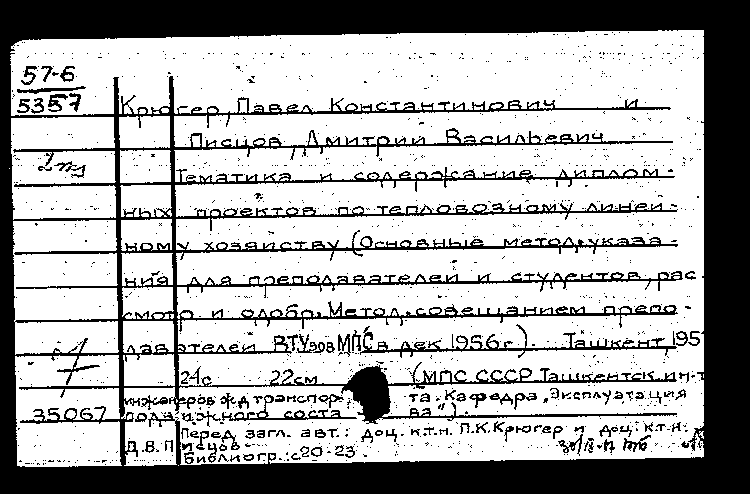 57-6
5357
Крюгер, Павел Константинович и
Писцов, Дмитрий Васильевич
Тематика и содержание диплом-
ных проектов по тепловозному линей-
ному хозяйству (Основные метод. указа-
ния для преподавателей и студентов, рас
смотр и одобр. Метод. совещанием препо-
давателей ВТУзов МПС в дек 1956 г.). Ташкент, 195
21с 22см (МПС СССР Ташкентск. ин-т
инженеров ж.д транспор та. Кафедра „Эксплуатация
подвижного соста ва").
35067
Перед загл. авт.: доц. к.т.н. П.К. Крюгер и доц. к.т.н.
Д.В. Писцов.
Библиогр.: с 20-23.